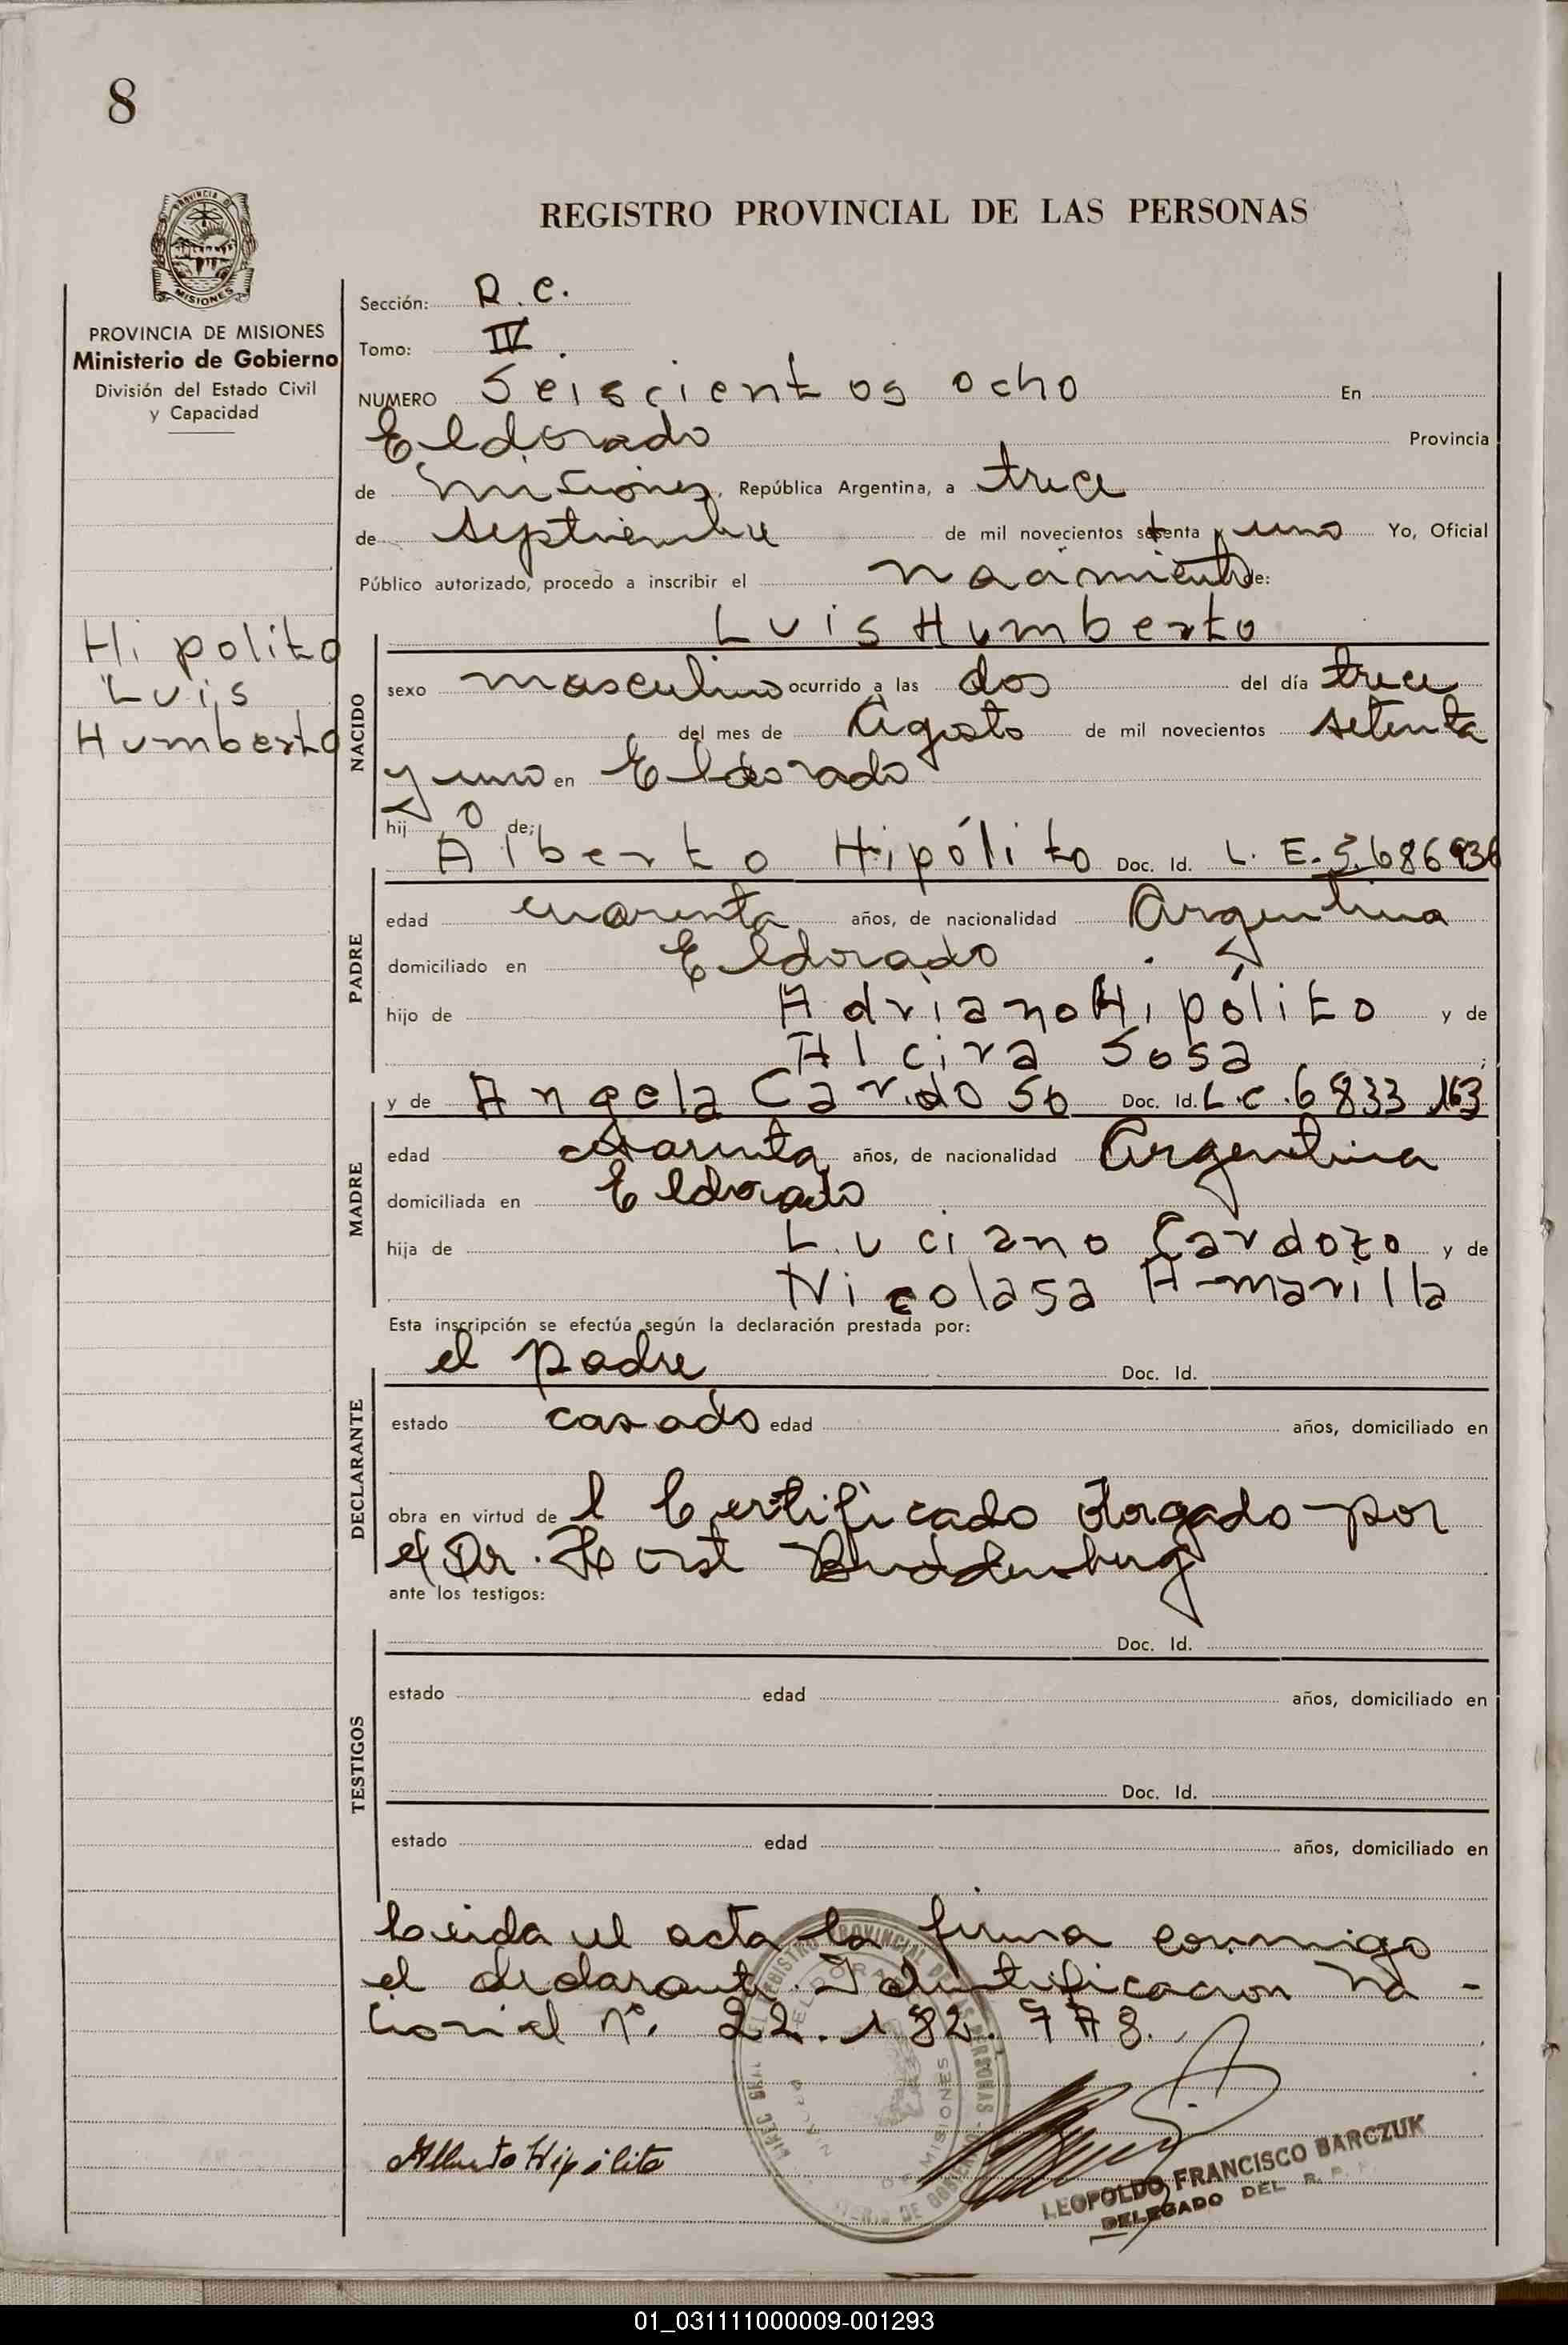 8
PROVINCIA DE
MISIONES
REGISTRO PROVINCIAL DE LAS PERSONAS
PROVINCIA DE MISIONES
Ministerio de Gobierno
División del Estado Civil
y Capacidad
Hipolito
Luis
Humberto
Sección: R.C.
Tomo: IV.
NUMERO Seiscientos ocho En
Eldorado Provincia
de Misiones, República Argentina, a trece
de septiembre de mil novecientos setenta y uno Yo, Oficial
Público autorizado, procedo a inscribir el nacimiento de:
Luis Humberto
NACIDO
sexo masculino ocurrido a las dos del día trece
del mes de Agosto de mil novecientos setenta
y uno en Eldorado
hij o de;
Alberto Hipólito Doc. Id. L.E. 5.686936
PADRE
edad cuarenta años, de nacionalidad Argentina
domiciliado en Eldorado
hijo de Adriano Hipólito y de
Alcira Sosa ;
y de Angela Cardoso Doc. Id. L.C. 6833163
MADRE
edad cuarenta años, de nacionalidad Argentina
domiciliada en Eldorado
hija de Luciano Cardozo y de
Nicolasa Amarilla
Esta inscripción se efectúa según la declaración prestada por:
el padre Doc. Id.
DECLARANTE
estado casado edad años, domiciliado en
obra en virtud de l Certificado otorgado por
el Dr. Horst Buddenberg
ante los testigos:
TESTIGOS
Doc. Id.
estado edad años, domiciliado en
Doc. Id.
estado edad años, domiciliado en
Leida el acta la firma conmigo
el declarante. Identificacion Na-
cional nº. 22.182.778.
Alberto Hipólito
LEOPOLDO FRANCISCO BARCZUK
DELEGADO DEL R. P. P.
01_031111000009-001293